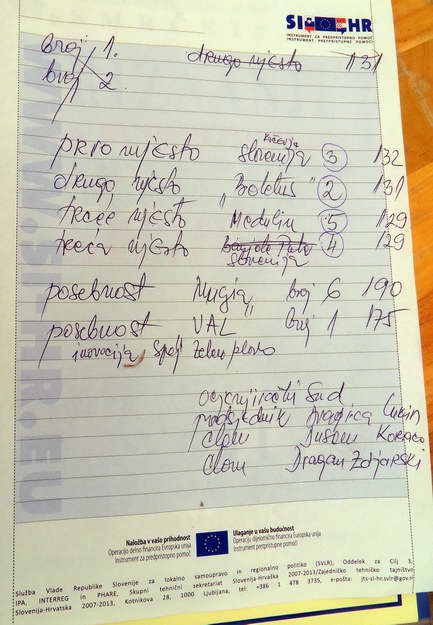 SI HR
INSTRUMENT ZA PREDPRISTOPNO POMOČ
INSTRUMENT PRETPRISTUPNE POMOĆI
broj 1. drugo mjesto 131
broj 2.
prvo mjesto Slovenija 3 132
drugo mjesto "Boletus" 2 131
treće mjesto "Medulin" 5 129
treća mjesto 4 129
Slovenija
posebnost Mugia broj 6 190
posebnost "VAL" broj 1 175
inovacija, Spoj zeleno plavo
Ocjenjivački Sud
predsjednik Dragica Lukin
član
član Dragan Zdjarski
WWW.SI-HR.EU
Naložba v vašo prihodnost
Operacijo delno financira Evropska unija
Instrument za predpristopno pomoč
Ulaganje u vašu budućnost
Operaciju djelomično financira Europska unija
Instrument pretpristupne pomoći
Služba Vlade Republike Slovenije za lokalno samoupravo in regionalno politiko (SVLR), Oddelek za Cilj 3,
IPA, INTERREG in PHARE, Skupni tehnični sekretariat Slovenija-Hrvaška 2007-2013/Zajedničko tehničko tajništvo
Slovenija-Hrvatska 2007-2013, Kotnikova 28, 1000 Ljubljana, tel: +386 1 478 3735, e-pošta: jts-si-hr.svlr@gov.si